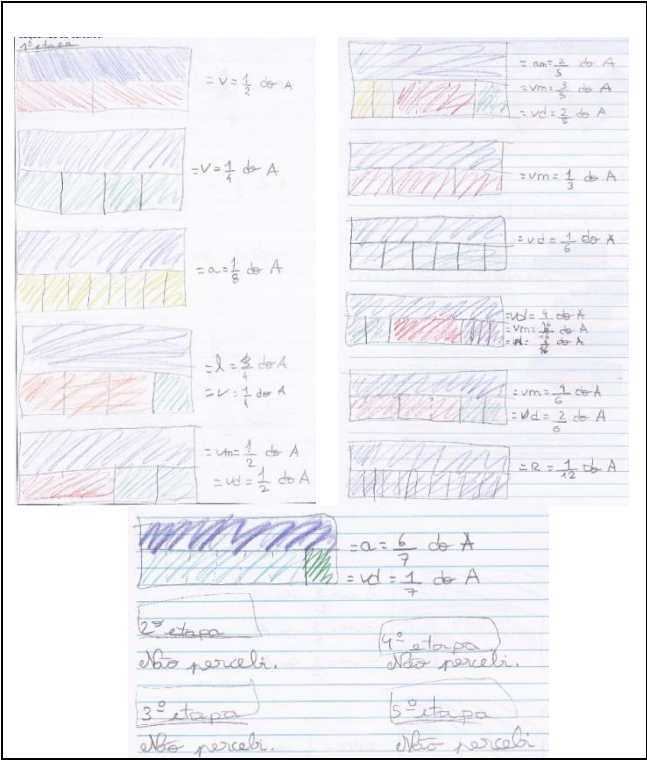 1ª etapa
= v = 1/2 do A
= V = 1/4 do A
= a = 1/8 do A
= l = 3/4 do A
= v = 1/4 do A
= vm = 1/2 do A
= vd = 1/2 do A
= am = 2/5 do A
= vm = 3/5 do A
= vd = 2/5 do A
= vm = 1/3 do A
= vd = 1/6 do A
= vd = 4/16 do A
= vm = 8/16 do A
= vm = 4/6 do A
= vd = 2/6 do A
= R = 1/12 do A
= a = 6/7 do A
= vd = 1/7 do A
2ª etapa
Não percebi.
3ª etapa
Não percebi.
4ª etapa
Não percebi.
5ª etapa
Não percebi